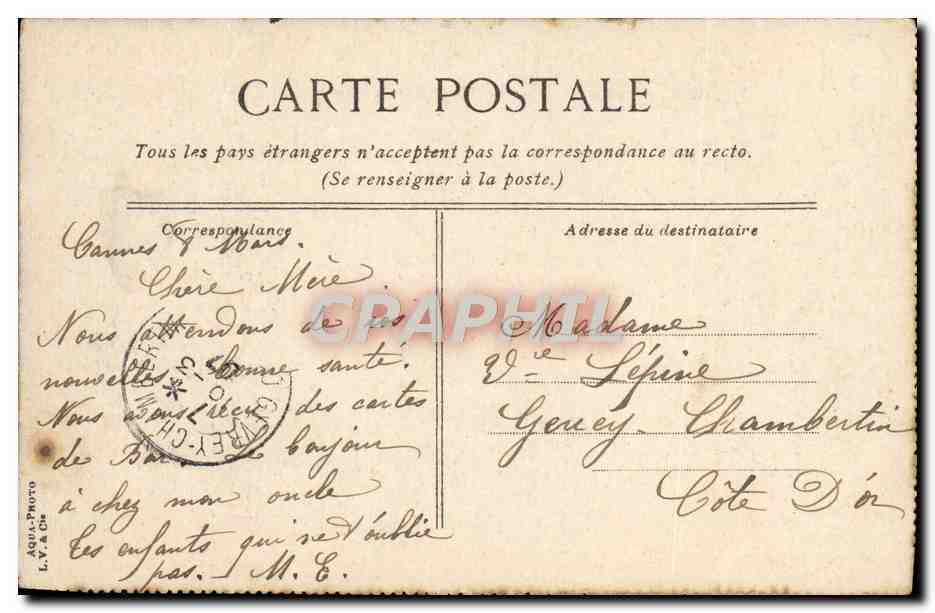 CARTE POSTALE
Tous les pays étrangers n'acceptent pas la correspondance au recto.
(Se renseigner à la poste.)
Correspondance
Adresse du destinataire
Cannes 8 Mars.
Chère Mère
Nous attendons de vos
nouvelles, bonne santé.
Nous avons reçu des cartes
de bonjour
à chez mon oncle
tes enfants qui ne t'oublie
pas. M. E.
Madame
Vve Lépine
Gevrey-Chambertin
Côte D'or
GEVREY-CHAMBERTIN
CRAPHIL
AQUA-PHOTO
L.V. & Cie